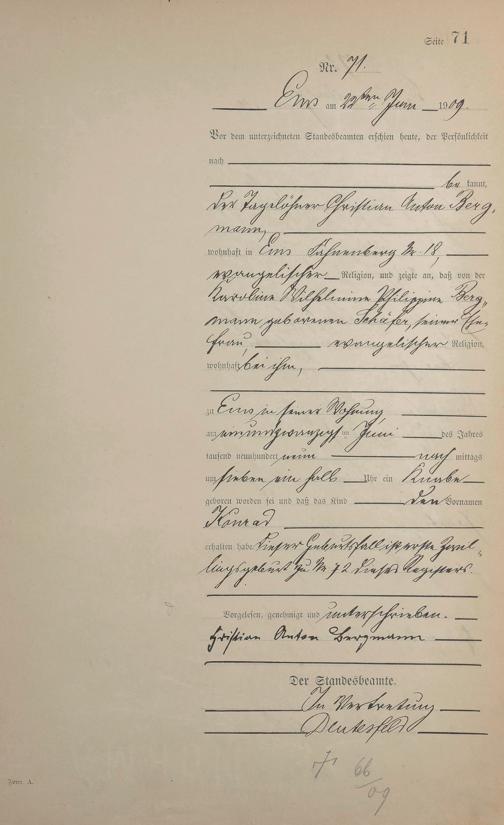 Seite 71
Nr. 71.
Ems am 22ten Juni 1909.
Vor dem unterzeichneten Standesbeamten erschien heute, der Persönlichkeit
nach
be kannt,
der Tagelöhner Christian Anton Berg,
mann,
wohnhaft in Ems Nr 18,
evangelischer Religion, und zeigte an, daß von der
Karoline Wilhelmine Philippine Berg,
mann geborenen Schäfer, seiner Ehe,
frau, evangelischer Religion,
wohnhaft bei ihm,
zu Ems in seiner Wohnung
am Juni des Jahres
tausend neunhundert neun nach mittags
um sieben ein halb Uhr ein Knabe
geboren worden sei und daß das Kind den Vornamen
Konrad
erhalten habe. Dieser Geburtsfall ist erste Zwil-
lingsgeburt zu Nr 72 dieses Registers.
Vorgelesen, genehmigt und unterschrieben.
Christian Anton Bergmann
Der Standesbeamte.
In Vertretung
66
/09
Form. A.